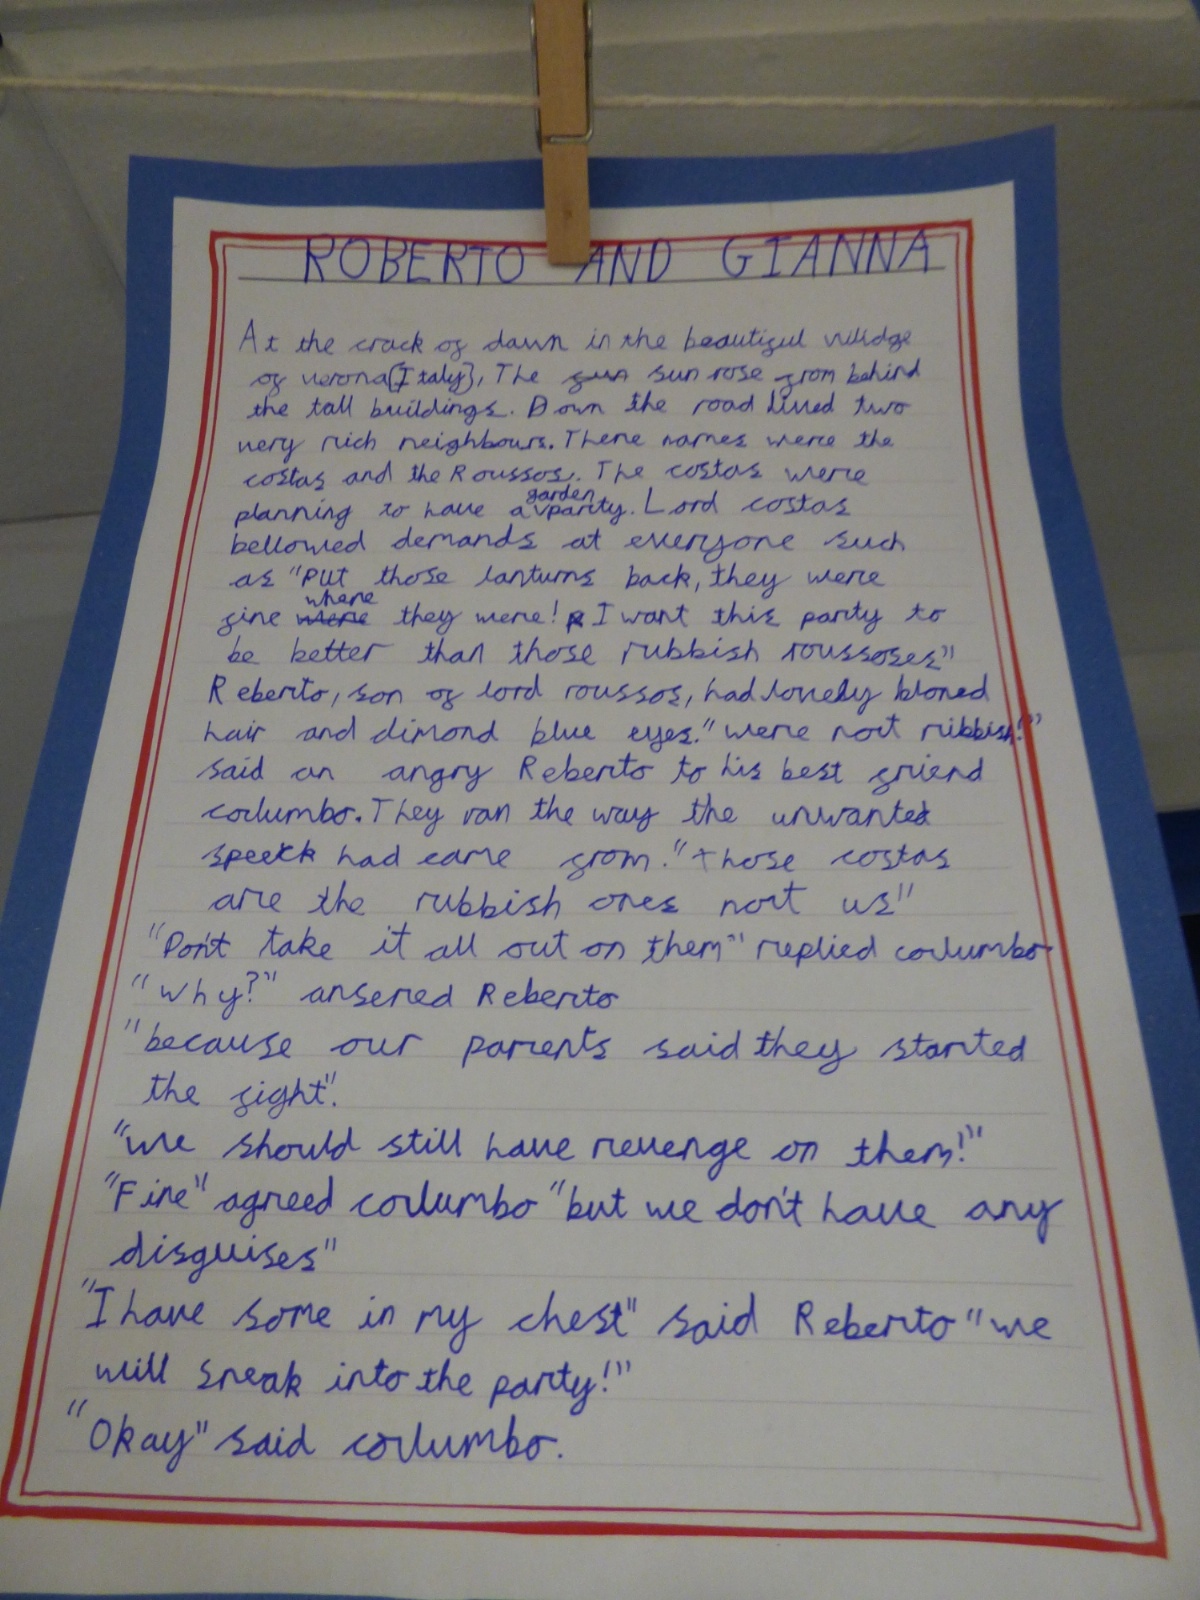 ROBERTO AND GIANNA
At the crack of dawn in the beautiful villdge
of verona(Italy), The sun sun rose from behind
the tall buildings. Down the road lived two
very rich neighbours. There names were the
costas and the Roussos. The costas were
planning to have a garden party. Lord costas
bellowed demands at everyone such
as "Put those lanturns back, they were
fine were where they were! I want this party to
be better than those rubbish roussoses"
Reberto, son of lord roussos, had lovely bloned
hair and dimond blue eyes. "were not rubbish!"
said an angry Reberto to his best friend
corlumbo. They ran the way the unwanted
speech had came from. "those costas
are the rubbish ones nort us"
"Don't take it all out on them" replied corlumbo
"Why?" ansered Reberto
"because our parents said they started
the fight".
"we should still have revenge on them!"
"Fine" agreed corlumbo "but we don't have any
disguises"
"I have some in my chest" said Reberto "we
will sneak into the party!"
"Okay" said corlumbo.